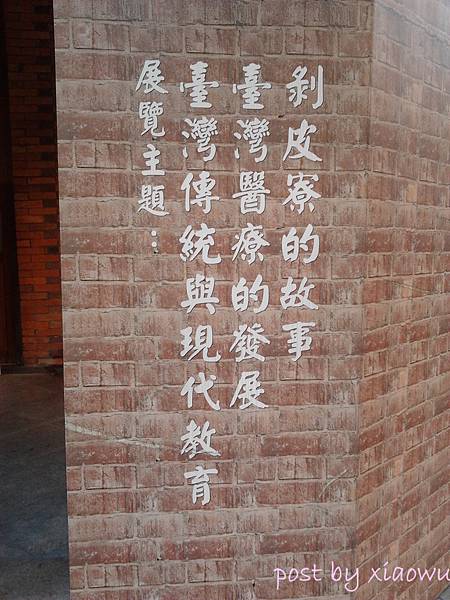 展覽主題：
臺灣傳統與現代教育
臺灣醫療的發展
剥皮寮的故事
post by xiaowu